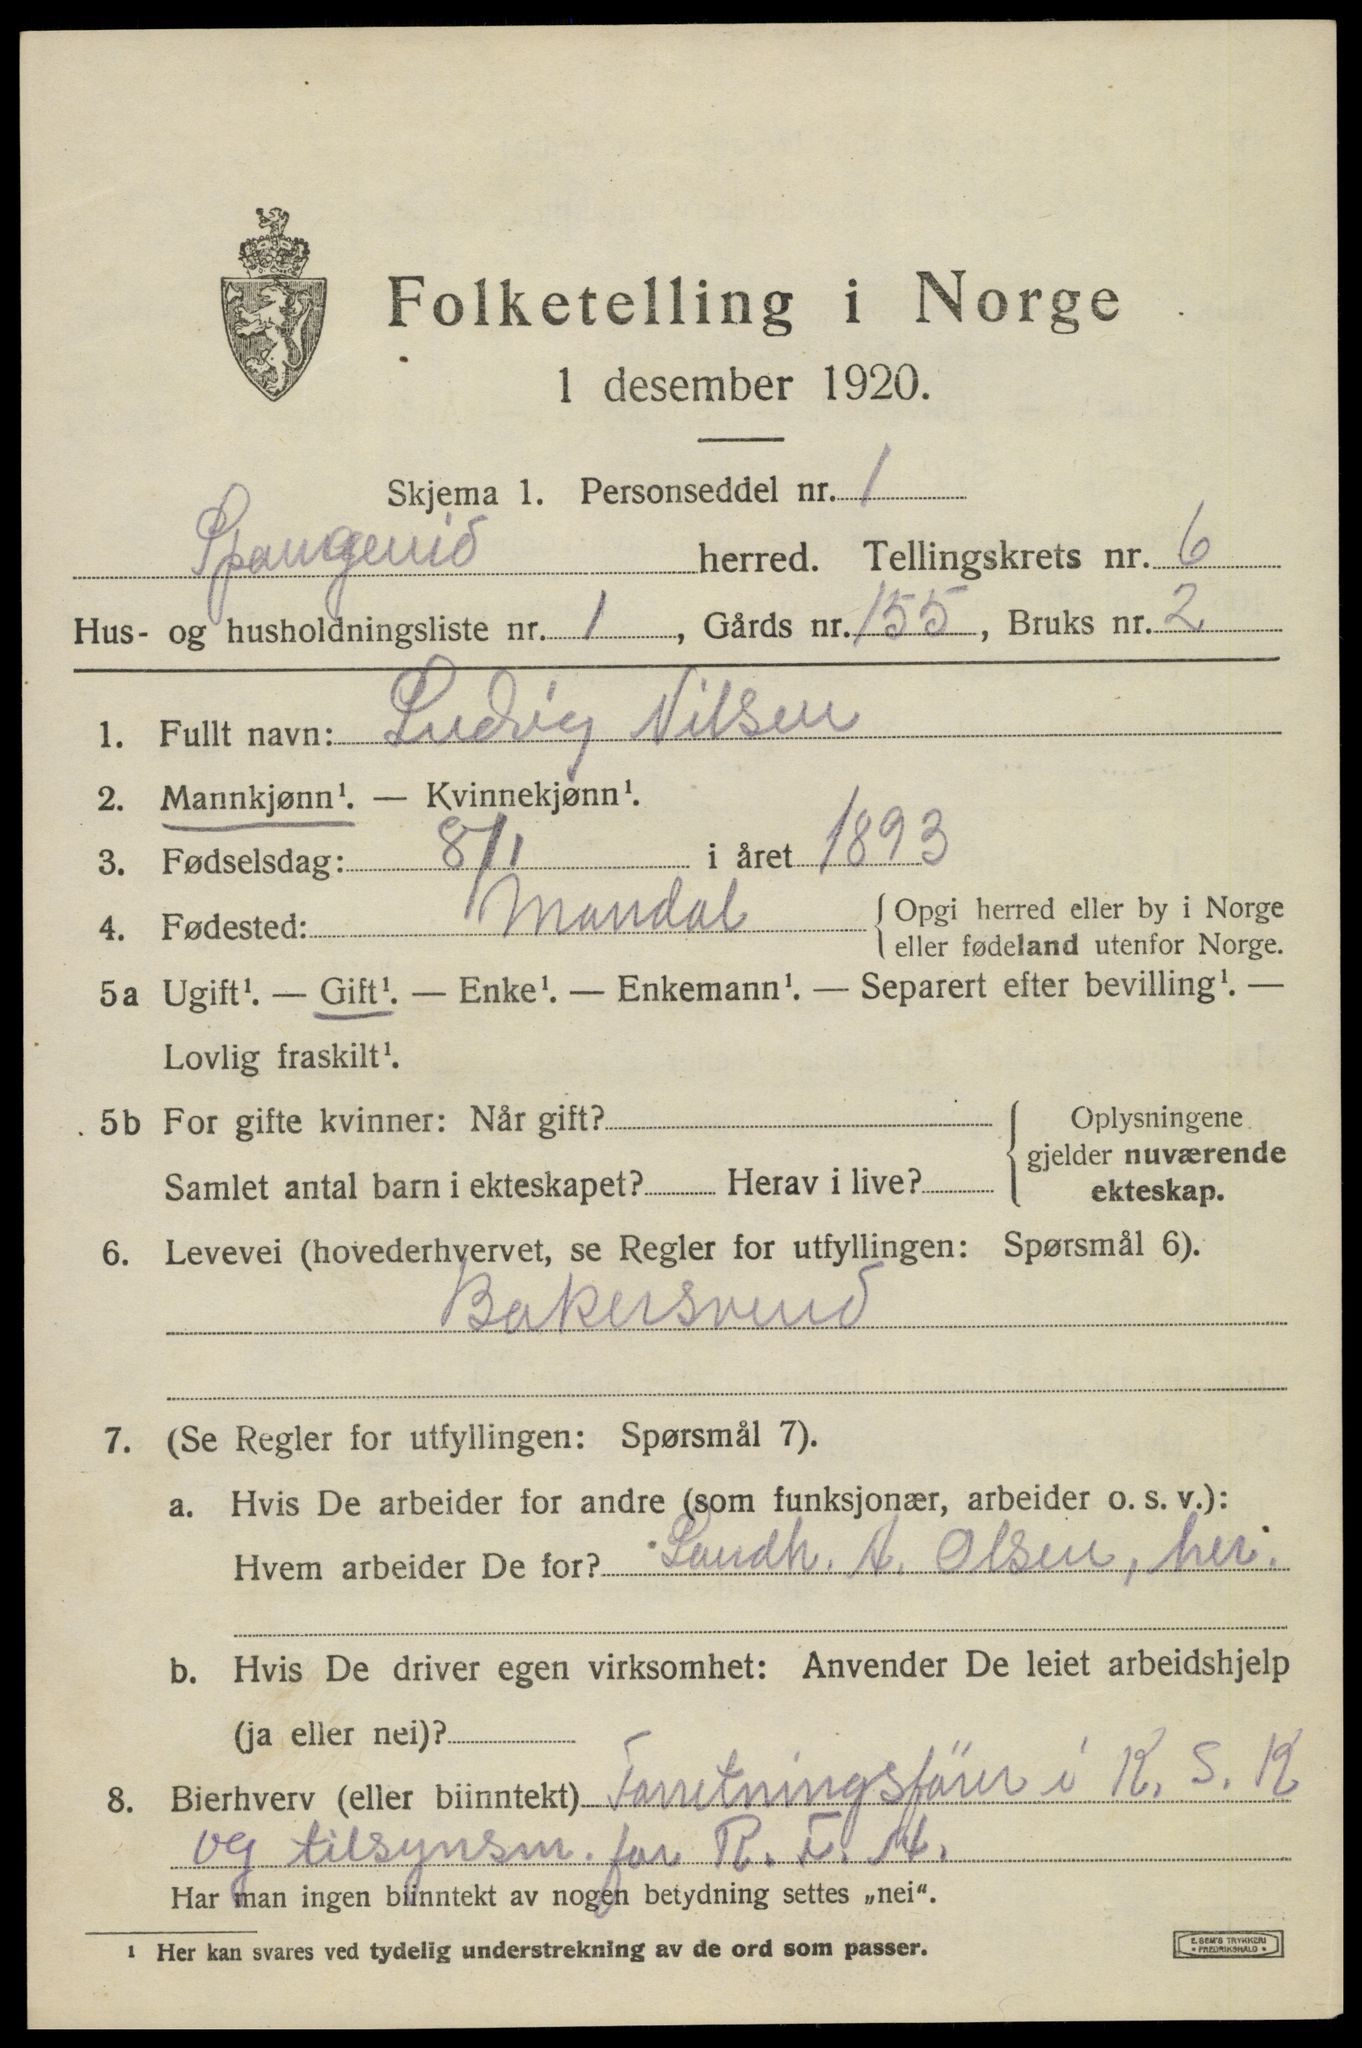 Folketelling i Norge
1 desember 1920.
Skjema 1. Personseddel nr. 1
Spangereid herred. Tellingskrets nr. 6
Hus- og husholdningsliste nr. 1, Gårds nr. 155, Bruks nr. 2
1. Fullt navn: Ludvig Nilsen
2. Mannkjønn¹. — Kvinnekjønn¹.
3. Fødselsdag: 8/1 i året 1893
4. Fødested: Mandal {Opgi herred eller by i Norge
eller fødeland utenfor Norge.
5a Ugift¹. — Gift¹. — Enke¹. — Enkemann¹. — Separert efter bevilling¹. —
Lovlig fraskilt¹.
5b For gifte kvinner: Når gift? {Oplysningene
gjelder nuværende
Samlet antal barn i ekteskapet? Herav i live? ekteskap.
6. Levevei (hovederhvervet, se Regler for utfyllingen: Spørsmål 6).
Bakersvend
7. (Se Regler for utfyllingen: Spørsmål 7).
a. Hvis De arbeider for andre (som funksjonær, arbeider o. s. v.):
Hvem arbeider De for? Landh. A. Olsen, her.
b. Hvis De driver egen virksomhet: Anvender De leiet arbeidshjelp
(ja eller nei)?
8. Bierhverv (eller biinntekt) Forretningsfører i K. S. K
og tilsynsm. for R. F. A.
Har man ingen biinntekt av nogen betydning settes „nei“.
¹ Her kan svares ved tydelig understrekning av de ord som passer.
E. SEM'S TRYKKERI
FREDRIKSHALD